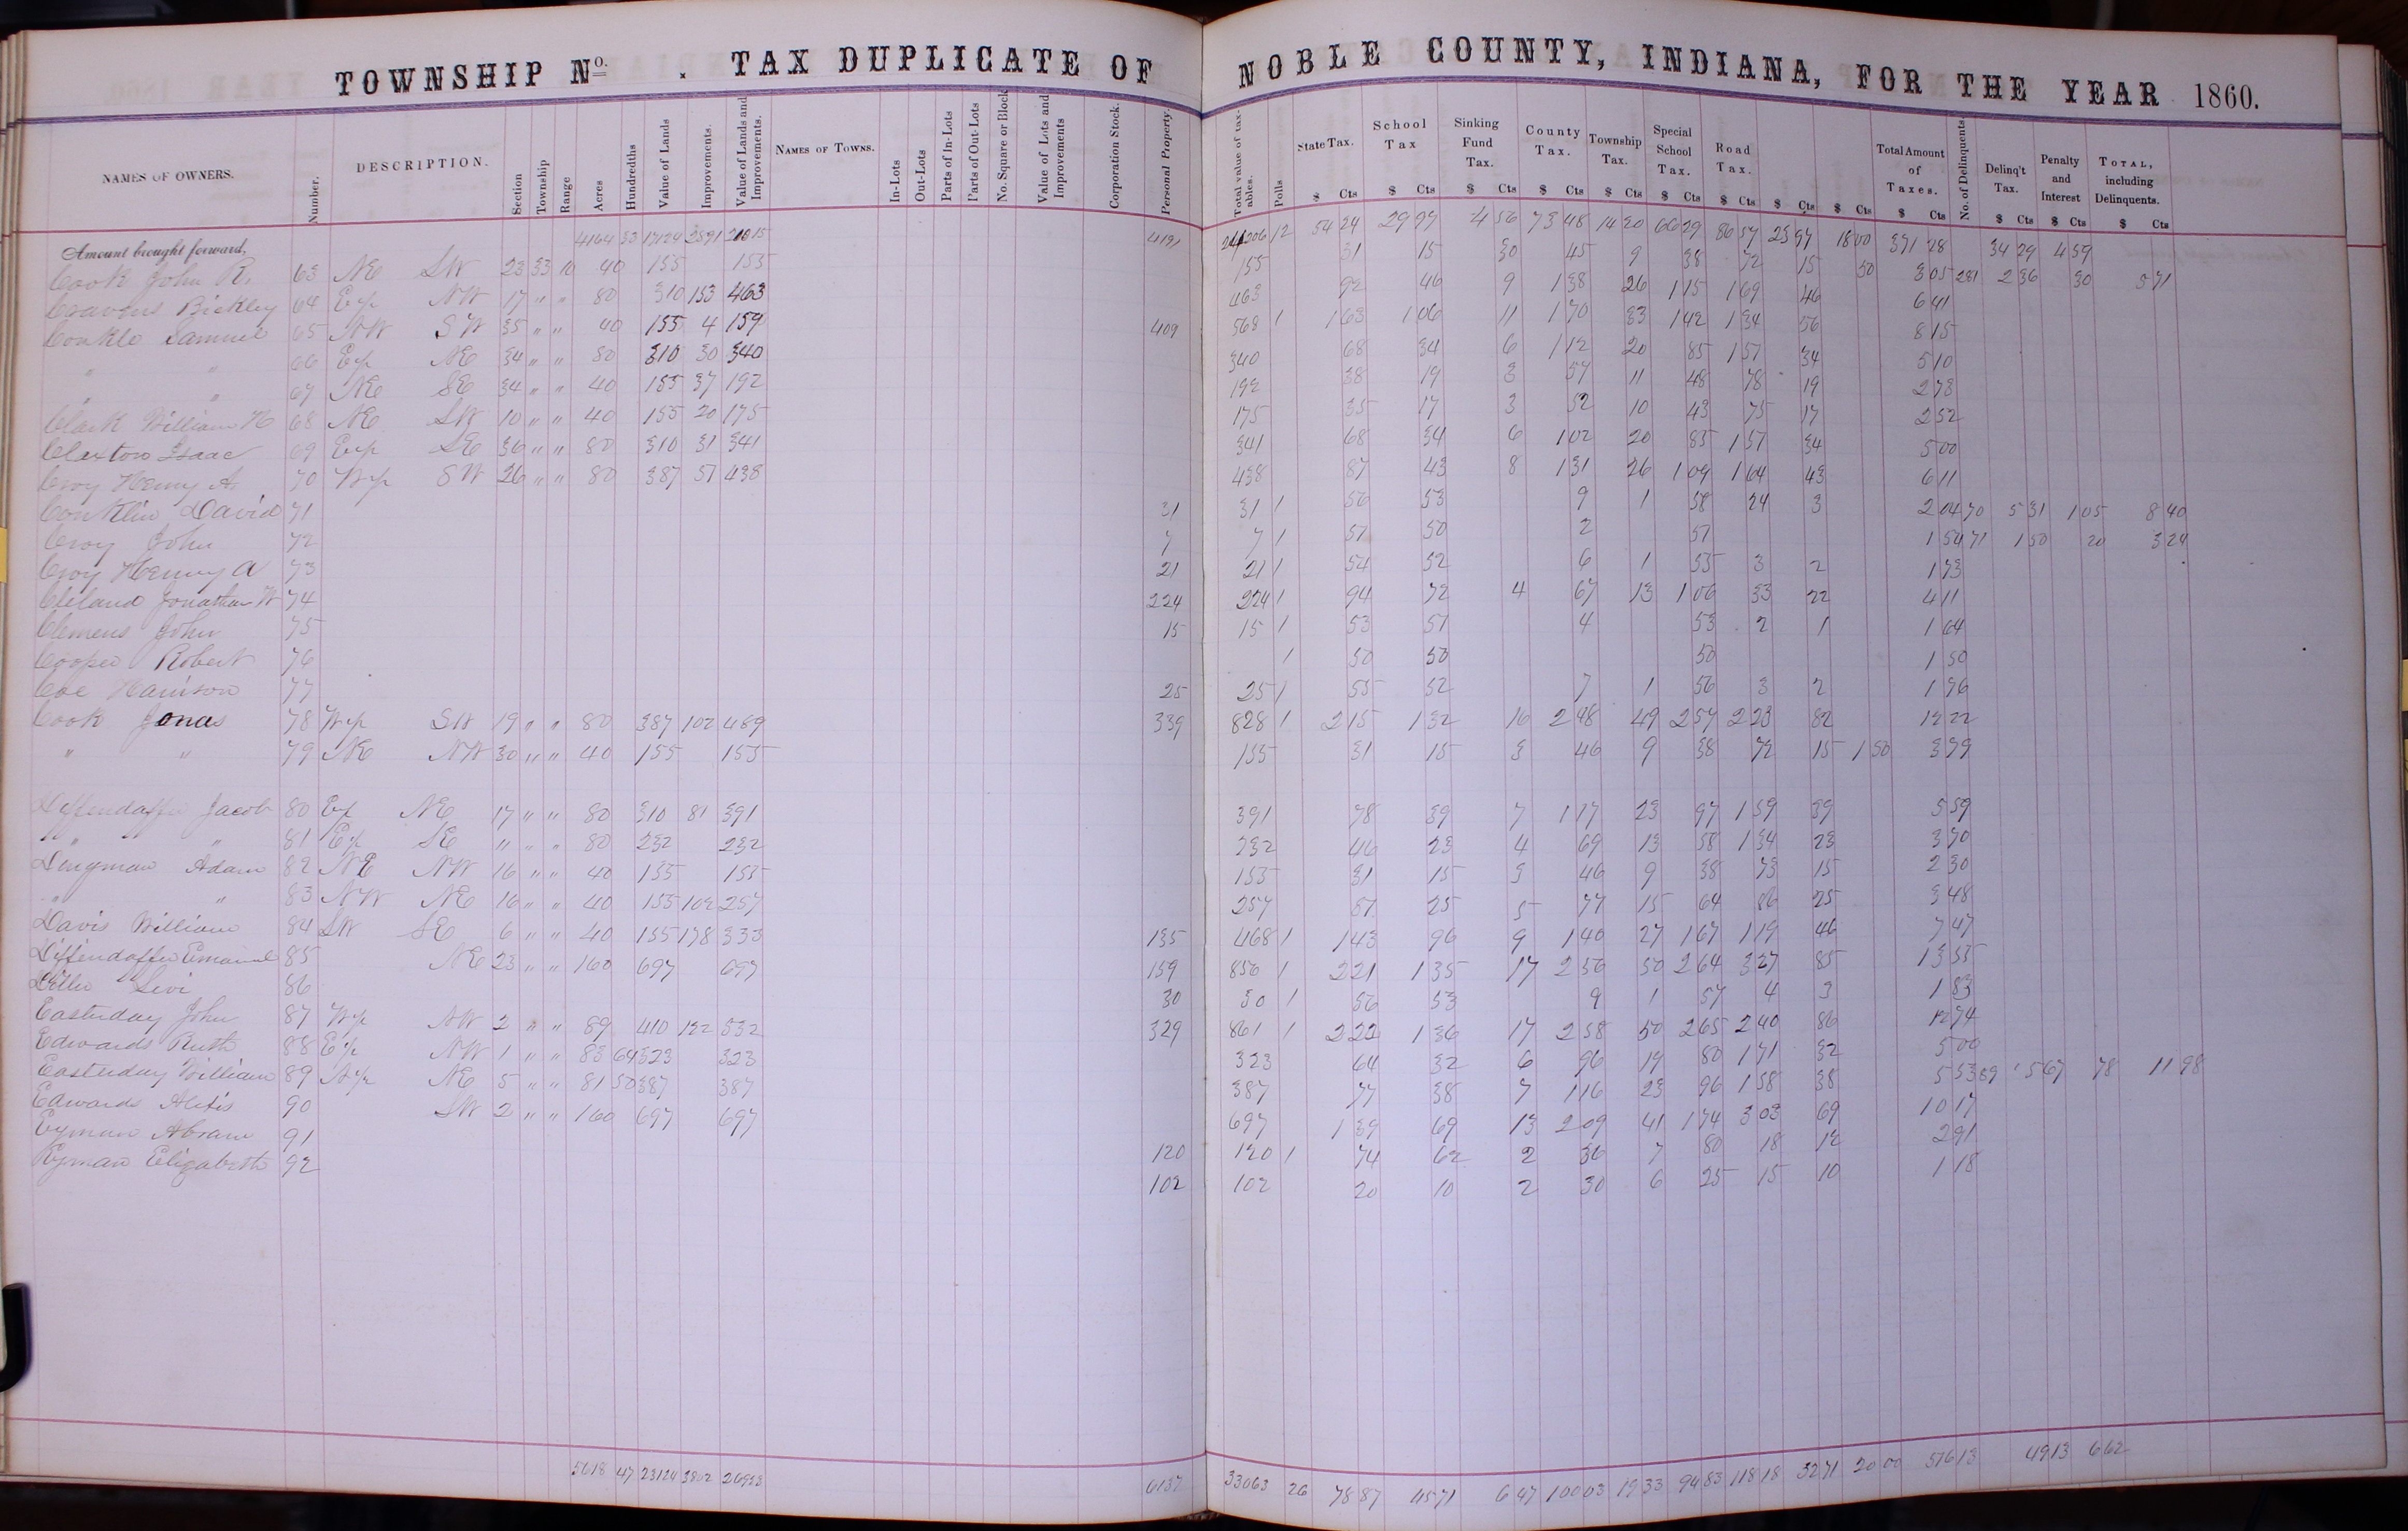 TOWNSHIP No. . TAX DUPLICATE OF NOBLE COUNTY, INDIANA, FOR THE YEAR 1860.
NAMES OF OWNERS. Number. DESCRIPTION. Section Township Range Acres Hundredths Value of Lands Improvements. Value of Lands and Improvements. NAMES OF TOWNS. In-Lots Out-Lots Parts of In-Lots Parts of Out-Lots No. Square or Block Value of Lots and Improvements Corporation Stock. Personal Property. Total value of taxables. Polls State Tax. School Tax Sinking Fund Tax. County Tax. Township Tax. Special School Tax. Road Tax. Total Amount of Taxes. No. of Delinquents Delinq't Tax. Penalty and Interest TOTAL, including Delinquents.
$ Cts $ Cts $ Cts $ Cts $ Cts $ Cts $ Cts $ Cts $ Cts $ Cts $ Cts $ Cts $ Cts
Amount brought forward, 4164 33 17124 2891 4191 12 54 24 29 99 4 56 73 48 14 20 66 29 86 57 23 97 18 00 371 28 34 29 4 59
Cook John R. 63 NE SW 23 33 10 40 155 155 155 31 15 30 45 9 38 72 15 50 3 05 2 36 30 5 71
Cravens Bickley 64 E½ NW 17 " " 80 310 153 463 463 92 46 9 1 38 26 1 15 1 69 46 6 41
Conkle Samuel 65 NW SW 35 " " 40 155 4 159 409 568 1 1 63 1 06 11 1 70 33 1 42 1 34 56 8 15
" " 66 E½ NE 34 " " 80 310 30 340 340 68 34 6 1 12 20 85 1 57 34 5 10
" " 67 NE SE 34 " " 40 155 37 192 192 38 19 3 57 11 48 78 19 2 73
Clark William H 68 NE SW 10 " " 40 155 20 175 175 35 17 3 52 10 43 75 17 2 52
Claxton Isaac 69 E½ SE 36 " " 80 310 31 341 341 68 34 6 1 02 20 85 1 57 34 5 00
Croy Henry A. 70 W½ SW 26 " " 80 387 51 438 438 87 43 8 1 31 26 1 09 1 64 43 6 11
Conklin David 71 31 31 1 56 53 9 1 58 24 3 2 04 70 5 31 1 05 8 40
Croy John 72 7 7 1 51 50 2 51 1 54 71 1 50 20 3 24
Croy Henry A 73 21 21 1 54 52 6 1 55 3 2 1 73
Cleland Jonathan W 74 224 224 1 94 72 4 67 13 1 06 33 22 4 11
Clemens John 75 15 15 1 53 51 4 53 2 1 1 64
Cooper Robert 76 1 50 50 50 1 50
Coe Harrison 77 25 25 1 55 52 7 1 56 3 2 1 76
Cook Jonas 78 W½ SW 19 " " 80 387 102 489 339 828 1 2 15 1 32 16 2 48 49 2 57 2 23 82 12 22
" " 79 NE NW 30 " " 40 155 155 155 31 15 3 46 9 38 72 15 1 50 3 79
Diffendaffer Jacob 80 E½ NE 17 " " 80 310 81 391 391 78 39 7 1 17 23 97 1 59 39 5 59
" " 81 E½ SE " " " 80 232 232 232 46 23 4 69 13 58 1 34 23 3 70
Dingman Adam 82 NE NW 16 " " 40 155 155 155 31 15 3 46 9 38 73 15 2 30
" " 83 NW NE 16 " " 40 155 102 257 257 51 25 5 77 15 64 86 25 3 48
Davis William 84 SW SE 6 " " 40 155 178 333 135 468 1 1 43 96 9 1 40 27 1 67 1 19 46 7 47
Diffendaffer Emanuel 85 NE 23 " " 160 697 697 159 856 1 2 21 1 35 17 2 56 50 2 64 3 27 85 13 55
Diller Levi 86 30 30 1 56 53 9 1 57 4 3 1 83
Easterday John 87 W½ NW 2 " " 89 410 122 532 329 861 1 2 22 1 36 17 2 58 50 2 65 2 40 86 12 74
Edwards Ruth 88 E½ NW 1 " " 83 64 323 323 323 64 32 6 96 19 80 1 71 32 5 00
Easterday William 89 NE 5 " " 81 50 387 387 387 77 38 7 1 16 23 96 1 58 38 5 53 89 5 67 78 11 98
Edwards 90 SW 2 " " 160 697 697 697 1 39 69 13 2 09 41 1 74 3 03 69 10 17
Eyman Abram 91 120 120 1 74 62 2 36 7 80 18 12 2 91
Eyman Elizabeth 92 102 102 20 10 2 30 6 25 15 10 1 18
5618 47 23124 3802 26933 6137 33063 26 78 87 45 71 6 47 100 03 19 33 94 83 118 18 32 71 20 00 516 13 49 13 6 62